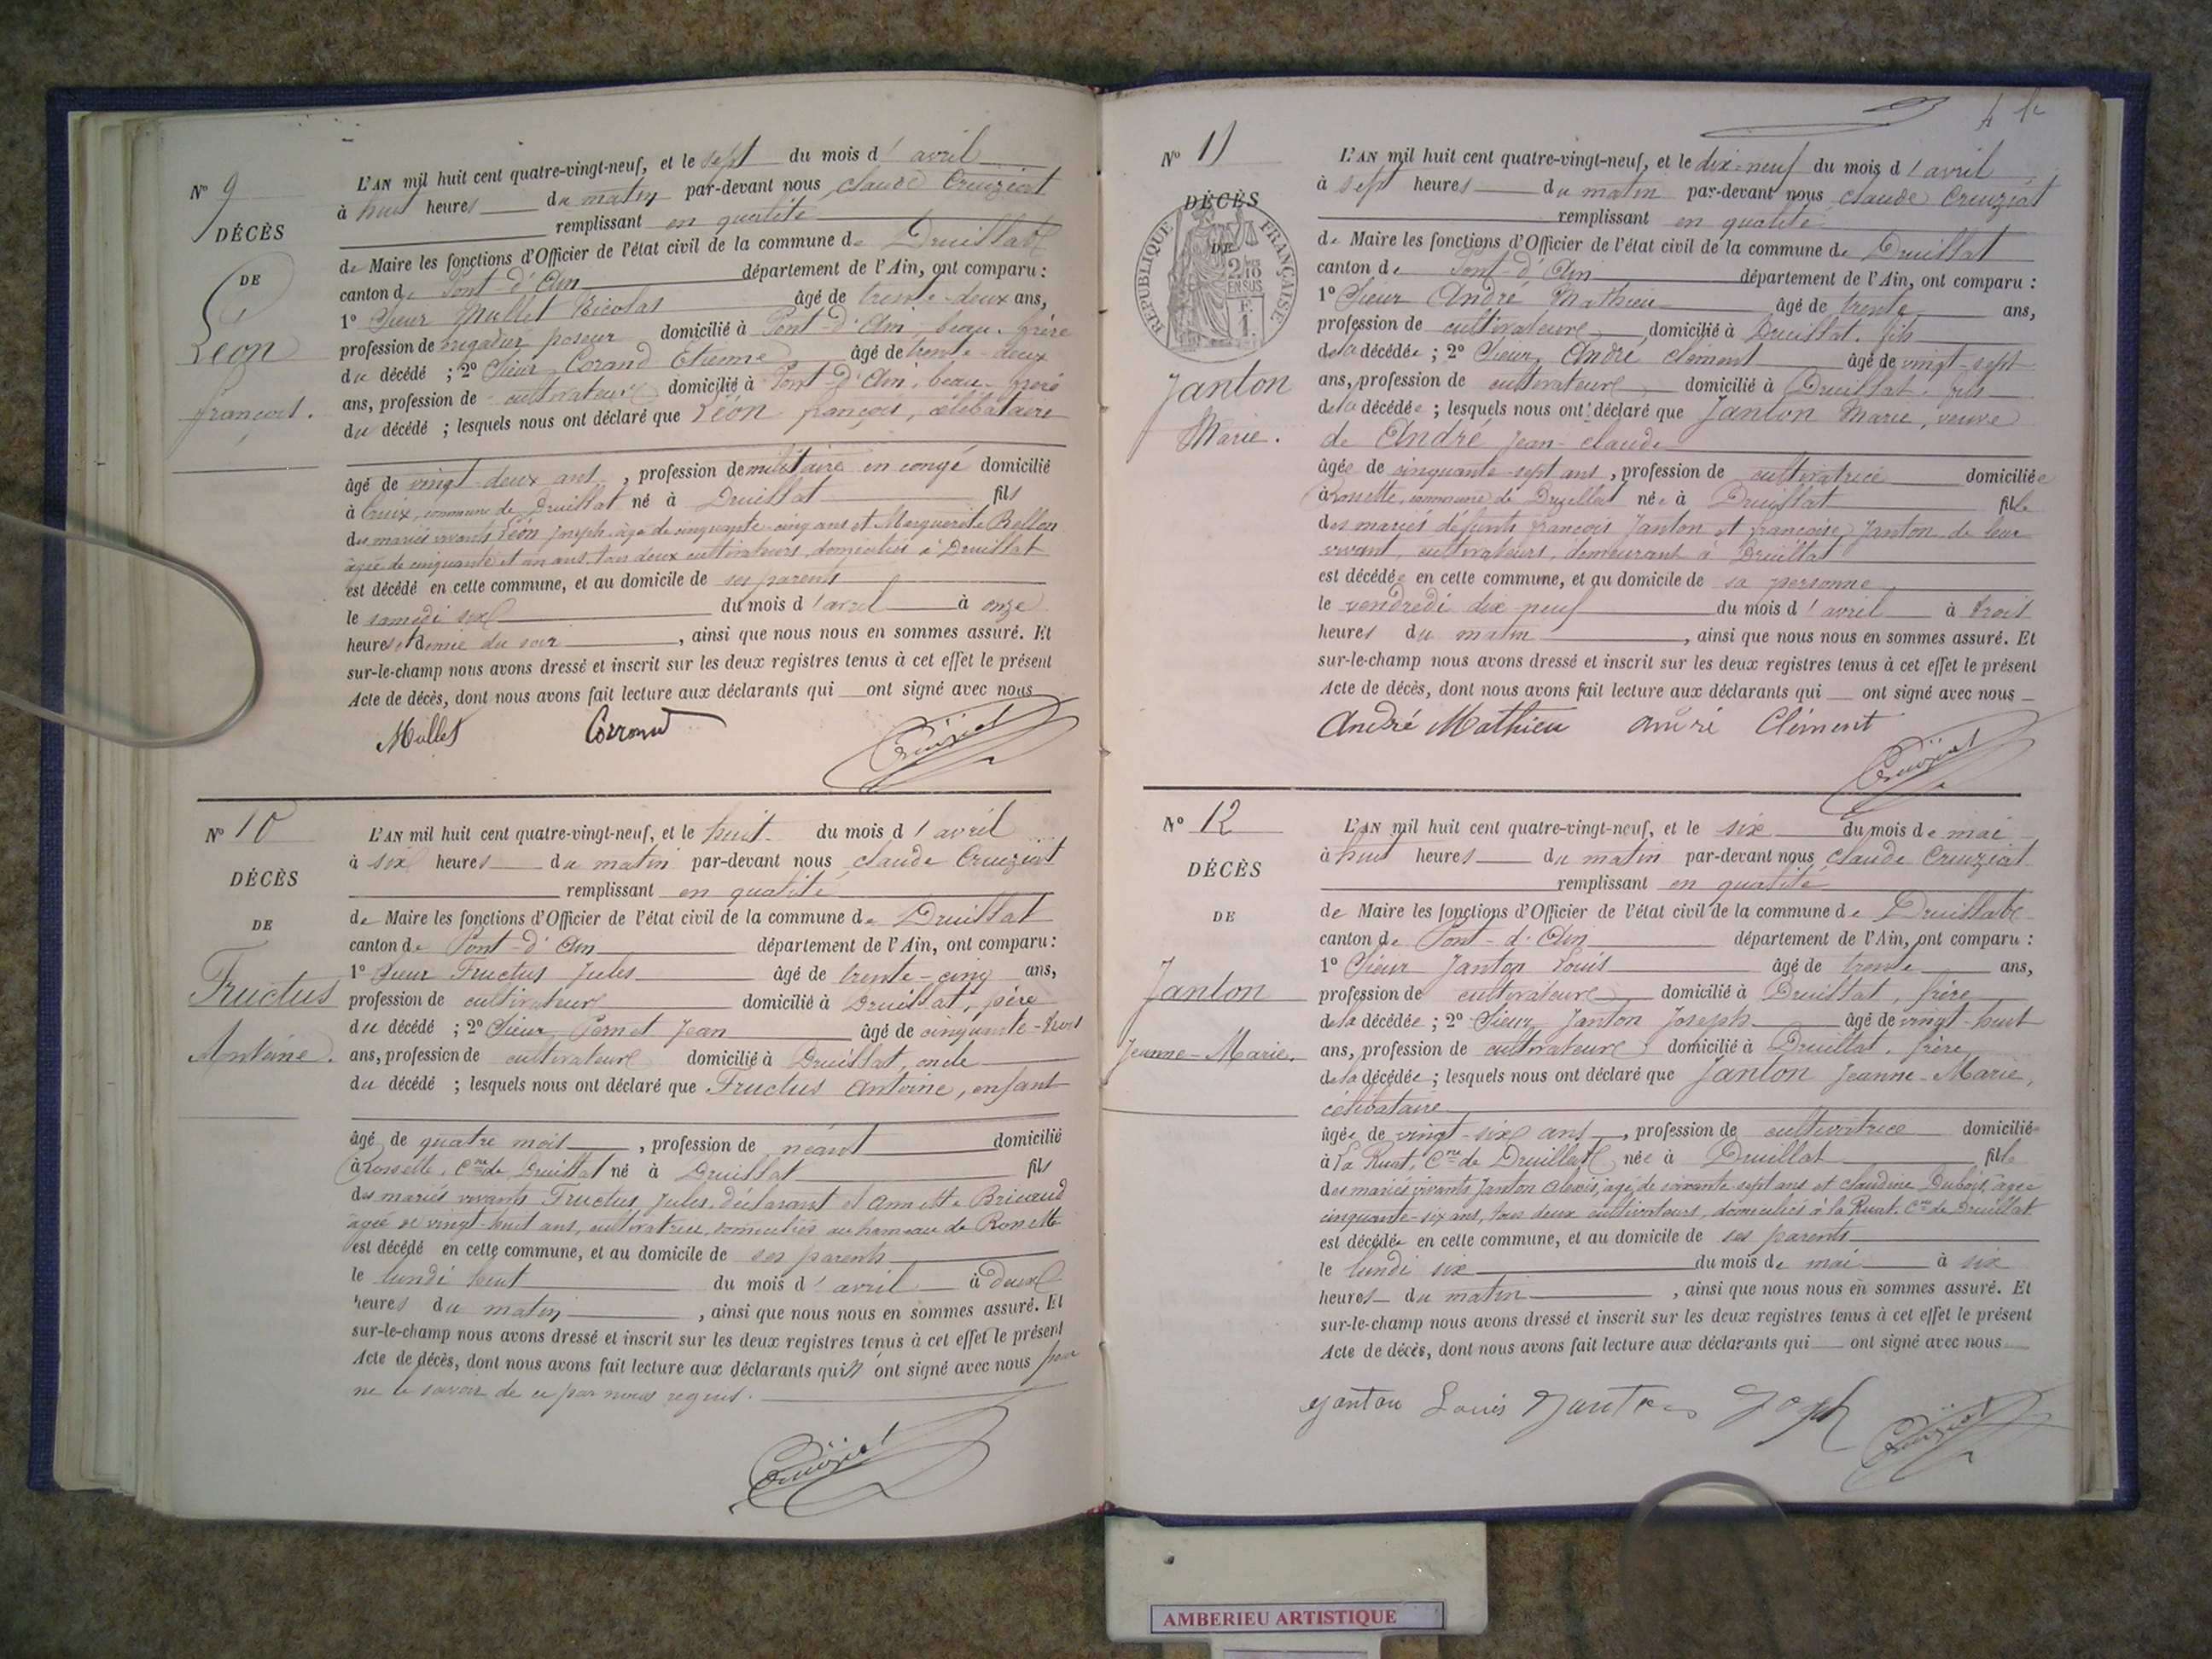 N° 9
DÉCÈS
DE
Léon
françois.
L'AN mil huit cent quatre-vingt-neuf, et le sept du mois d'avril
à huit heures du matin par-devant nous claude Cruiziat
remplissant en qualité
de Maire les fonctions d'Officier de l'état civil de la commune de Druillat
canton de Pont-d'Ain département de l'Ain, ont comparu :
1° Sieur Mullet Nicolas âgé de trente-deux ans,
profession de brigadier poseur domicilié à Pont-d'Ain, beau-frère
du décédé ; 2° Sieur Corand Etienne âgé de trente-deux
ans, profession de cultivateur domicilié à Pont-d'Ain, beau-frère
du décédé ; lesquels nous ont déclaré que Léon françois, célibataire
âgé de vingt-deux ans, profession de militaire en congé domicilié
à commune de Druillat né à Druillat fils
des mariés vivants Léon Joseph âgé de cinquante-cinq ans et Marguerite Bellon
âgée de cinquante et un ans, tous deux cultivateurs, domiciliés à Druillat
est décédé en cette commune, et au domicile de ses parents
le samedi six du mois d'avril à onze
heures et demie du soir, ainsi que nous nous en sommes assuré. Et
sur-le-champ nous avons dressé et inscrit sur les deux registres tenus à cet effet le présent
Acte de décès, dont nous avons fait lecture aux déclarants qui ont signé avec nous
Mullet Corrand Cruiziat
N° 10
DÉCÈS
DE
Fructus
Antoine.
L'AN mil huit cent quatre-vingt-neuf, et le huit du mois d'avril
à six heures du matin par-devant nous claude Cruiziat
remplissant en qualité
de Maire les fonctions d'Officier de l'état civil de la commune de Druillat
canton de Pont-d'Ain département de l'Ain, ont comparu :
1° Sieur Fructus Jules âgé de trente-cinq ans,
profession de cultivateur domicilié à Druillat, père
du décédé ; 2° Sieur Pernet Jean âgé de cinquante-trois
ans, profession de cultivateur domicilié à Druillat, oncle
du décédé ; lesquels nous ont déclaré que Fructus Antoine, enfant
âgé de quatre mois, profession de néant domicilié
à Rossette, Cne de Druillat né à Druillat fils
des mariés vivants Fructus Jules, déclarant et Annette Brivaud
âgée de vingt-huit ans, cultivatrice, domiciliés au hameau de Rossette
est décédé en cette commune, et au domicile de ses parents
le lundi huit du mois d'avril à deux
heures du matin, ainsi que nous nous en sommes assuré. Et
sur-le-champ nous avons dressé et inscrit sur les deux registres tenus à cet effet le présent
Acte de décès, dont nous avons fait lecture aux déclarants qui n'ont signé avec nous pour
ne le savoir de ce par nous requis.
Cruiziat
N° 11
DÉCÈS
DE
RÉPUBLIQUE FRANÇAISE
2/10
EN SUS
F.
1.
Janton
Marie.
L'AN mil huit cent quatre-vingt-neuf, et le dix-neuf du mois d'avril
à sept heures du matin par-devant nous claude Cruiziat
remplissant en qualité
de Maire les fonctions d'Officier de l'état civil de la commune de Druillat
canton de Pont-d'Ain département de l'Ain, ont comparu :
1° Sieur André Mathieu âgé de trente ans,
profession de cultivateur domicilié à Druillat, fils
de la décédée ; 2° Sieur André clément âgé de vingt-sept
ans, profession de cultivateur domicilié à Druillat, fils
de la décédée ; lesquels nous ont déclaré que Janton Marie, veuve
de André Jean-claude
âgée de cinquante-sept ans, profession de cultivatrice domiciliée
à Rossette, commune de Druillat née à Druillat fille
des mariés défunts françois Janton et françoise Janton de leur
vivant, cultivateurs, demeurant à Druillat
est décédée en cette commune, et au domicile de sa personne
le vendredi dix-neuf du mois d'avril à trois
heures du matin, ainsi que nous nous en sommes assuré. Et
sur-le-champ nous avons dressé et inscrit sur les deux registres tenus à cet effet le présent
Acte de décès, dont nous avons fait lecture aux déclarants qui ont signé avec nous
André Mathieu André Clément
Cruiziat
N° 12
DÉCÈS
DE
Janton
Jeanne-Marie.
L'AN mil huit cent quatre-vingt-neuf, et le six du mois de mai
à huit heures du matin par-devant nous claude Cruiziat
remplissant en qualité
de Maire les fonctions d'Officier de l'état civil de la commune de Druillat
canton de Pont-d'Ain département de l'Ain, ont comparu :
1° Sieur Janton Louis âgé de trente ans,
profession de cultivateur domicilié à Druillat, frère
de la décédée ; 2° Sieur Janton Joseph âgé de vingt-huit
ans, profession de cultivateur domicilié à Druillat, frère
de la décédée ; lesquels nous ont déclaré que Janton Jeanne-Marie,
célibataire
âgée de vingt-six ans, profession de cultivatrice domiciliée
à la Ruat, Cne de Druillat née à Druillat fille
des mariés vivants Janton Alexis, âgé de soixante sept ans et claudine Dubois, âgée
cinquante-six ans, tous deux cultivateurs, domiciliés à la Ruat. Cne de Druillat
est décédée en cette commune, et au domicile de ses parents
le lundi six du mois de mai à six
heures du matin, ainsi que nous nous en sommes assuré. Et
sur-le-champ nous avons dressé et inscrit sur les deux registres tenus à cet effet le présent
Acte de décès, dont nous avons fait lecture aux déclarants qui ont signé avec nous
Janton Louis Janton Joseph Cruiziat
AMBERIEU ARTISTIQUE